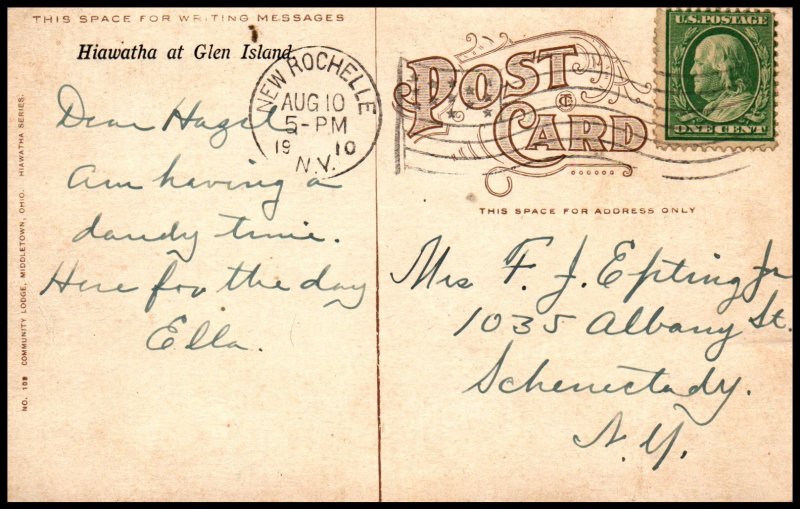 THIS SPACE FOR WRITING MESSAGES
Hiawatha at Glen Island
NEW ROCHELLE
AUG 10
5-PM
19 10
N.Y.
Dear Hazel
Am having a
dandy time.
Here for the day
Ella.
NO. 108 COMMUNITY LODGE, MIDDLETOWN, OHIO. HIAWATHA SERIES.
POST
CARD
U.S. POSTAGE
ONE CENT
THIS SPACE FOR ADDRESS ONLY
Mrs F. J. Epting Jr
1035 Albany St.
Schenectady.
N.Y.